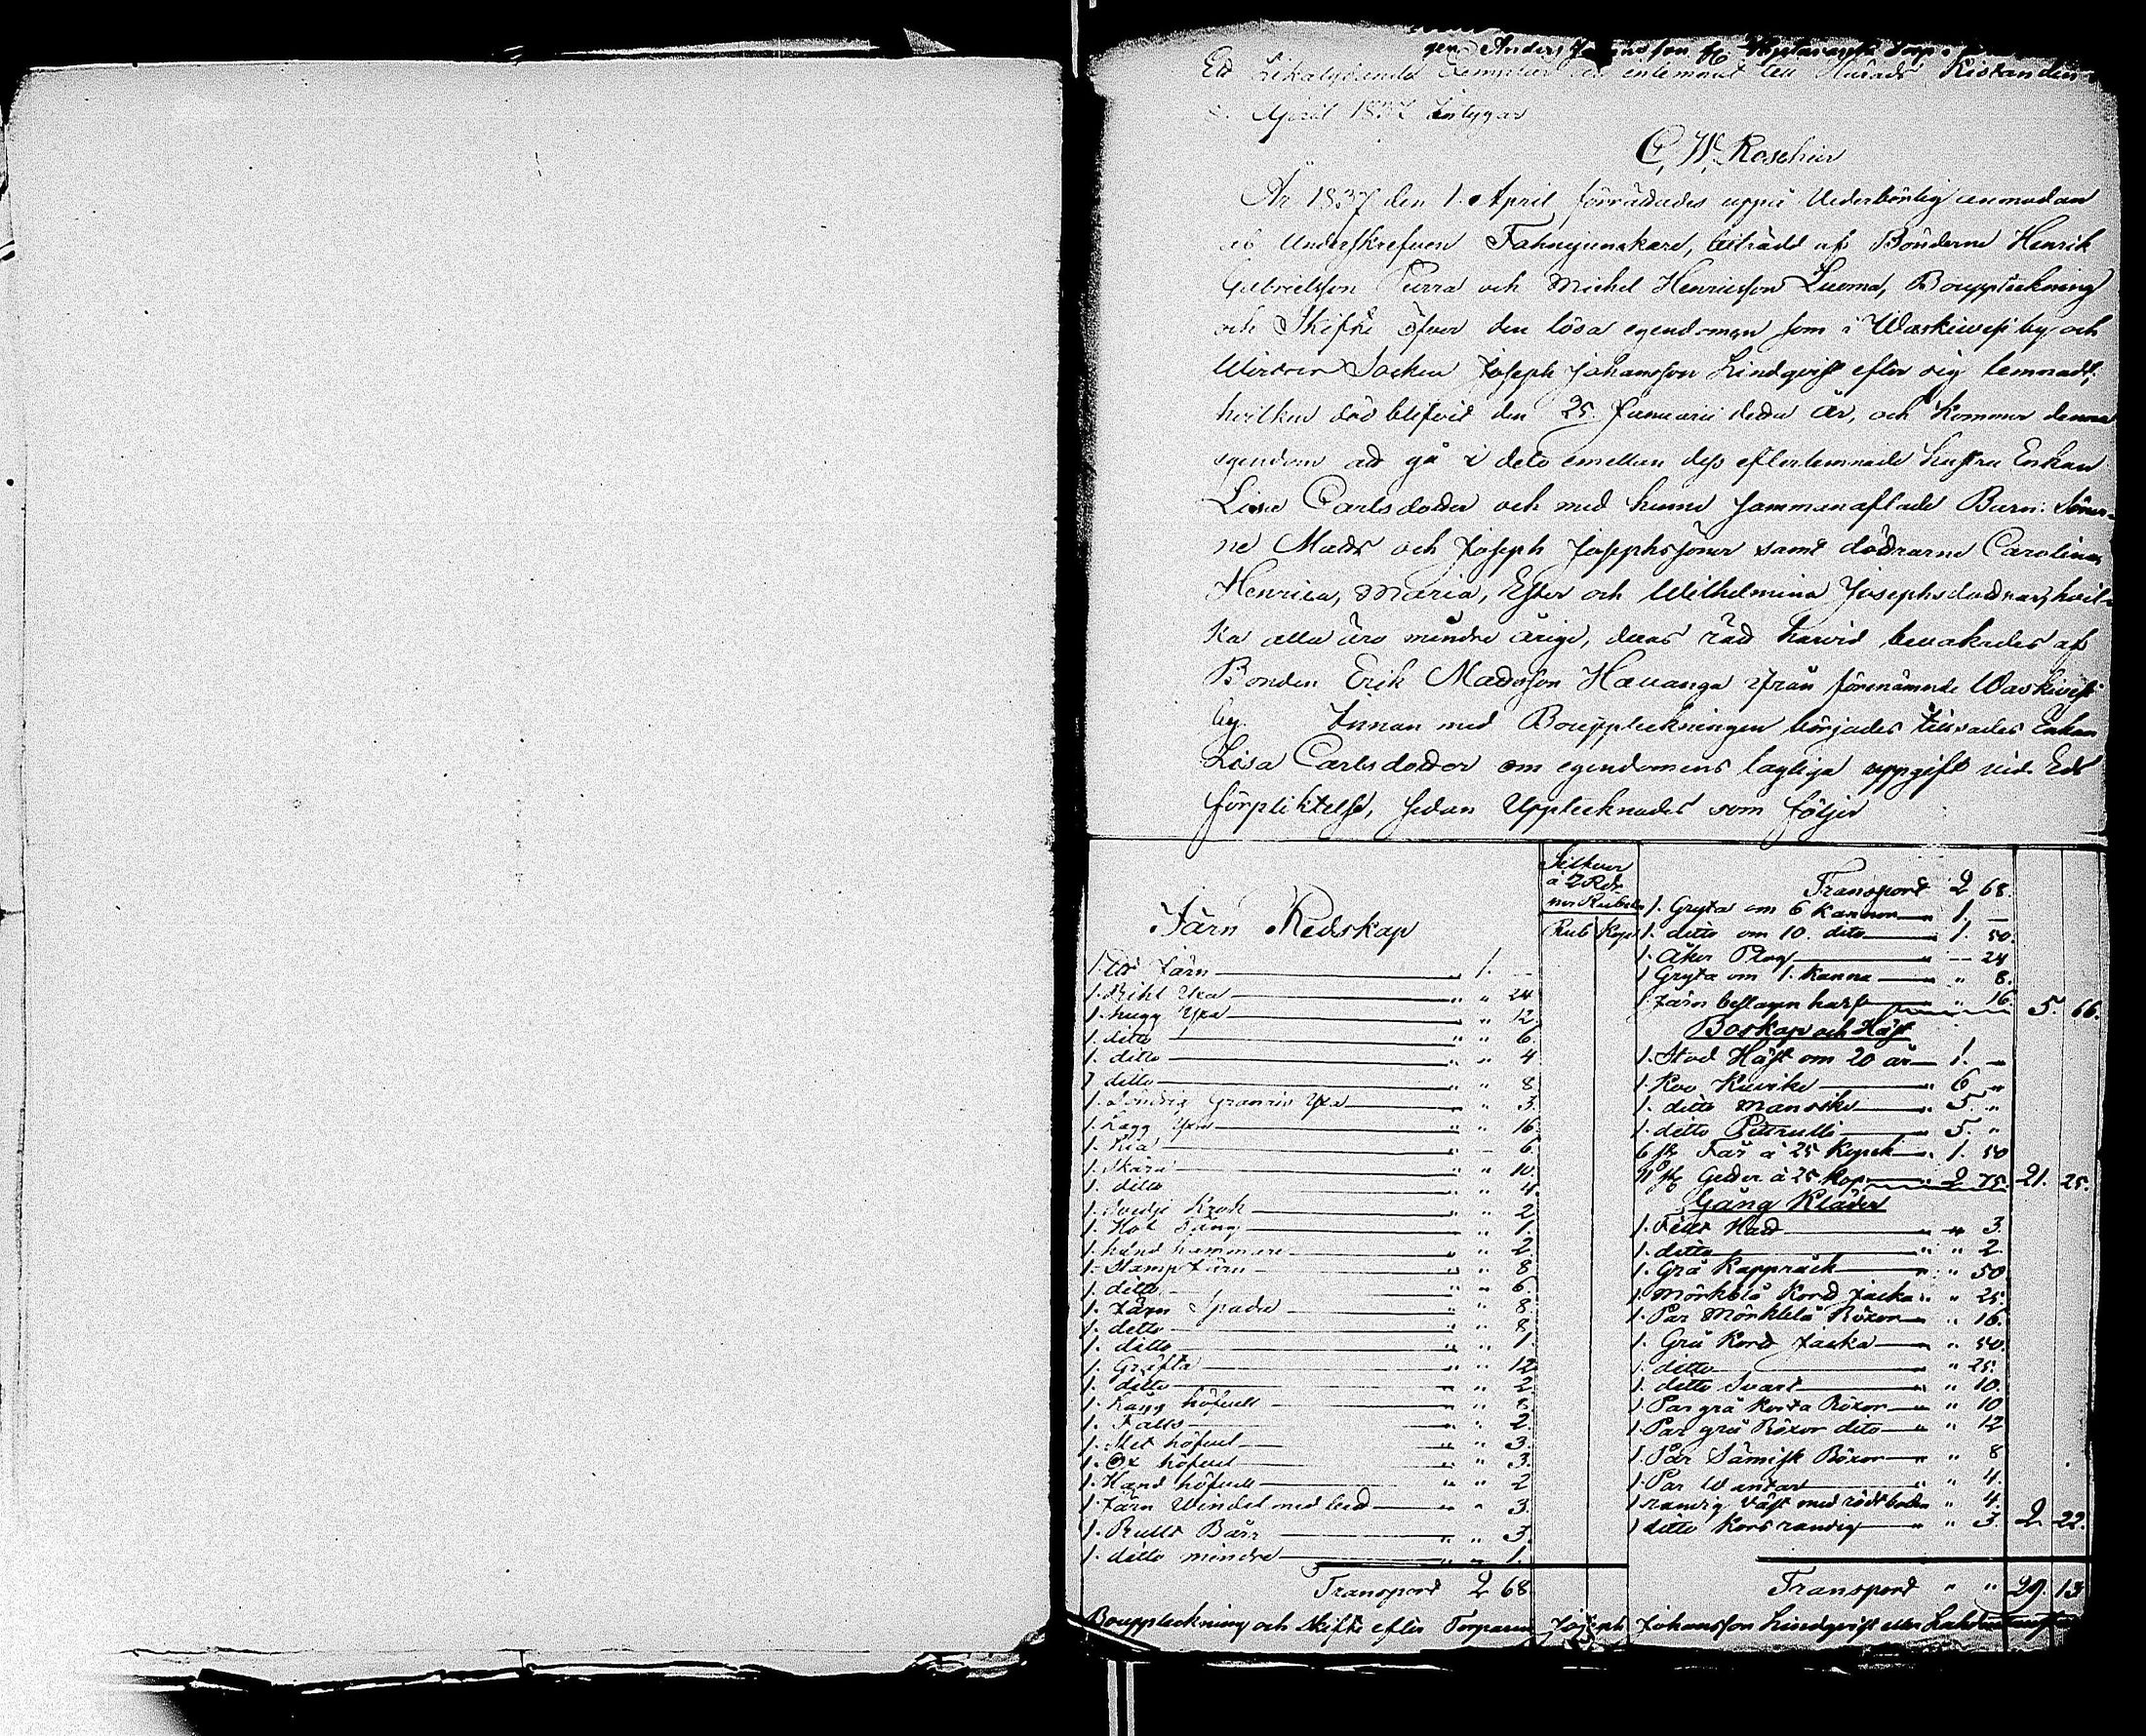 Anders
Ett Likalydande Exemplar inlemnat till Härads Kistan den
April 1837 Intygar
C. W. Roschier
År 1837 den 1. April förrättades uppå Vederbörlig anmodan
af Underskrefven Fahnejunkare, biträdd af Bönderne Henrik
Gabrielsson Purra och Michel Henricsson Luoma, Bouppteckning
och Skifte öfver den lösa egendomen som i Waskivesi by och
Wirdois Socken Joseph Johansson Lindqvist efter sig lemnadt,
hvilken död blifvit den 25. Januarii detta år, och kommer denna
egendom att gå i delo emellan dess efterlemnade hustru Enkan
Lisa Carlsdotter och med henne sammanaflade Barn: Söner-
ne Matts och Joseph Josephssöner samt döttrarne Carolina,
Henrica, Maria, Ester och Wilhelmina Josephsdöttrar, hvil-
ka alla äro mindre årige, deras rätt härvid bevakades af
Bonden Erik Mattsson Havanga ifrån förenämnde Waskivesi
by. Innan med Bouppteckningen börjades tillsades Enkan
Lisa Carlsdotter om egendomens lagliga uppgift vid Eds
förpliktelse, sedan Upptecknades som följer
Silkver
à 2 Rdr
Rubel
Rub Kop
Järn Redskap
1. Järn 1. —
1. Bihl Yxa " 24
1. hugg Yxa " 12
1. ditto " " 6
1. ditto " " 4
1 ditto " " 8
1. Söndrig Granris Yxa " " 3
1. Lagg Yxa " " 16
1. Lia " 6
1. Skära " " 10
1. ditto " " 4
1. Svedje Krok " " 2
1. Hof Tång " " 1
1. hand hammare " " 2
1. Stamp Järn " " 8
1. ditto " " 6
1. Järn Spade " " 8
1. ditto " " 8
1. ditto " " 1
1. Gräfta " " 12
1. ditto " " 2
1. Kägg höfvell " " 8
1. Falts " " 2
1. Slet höfvel " " 3
1. Ox höfvel " " 3
1. Hand höfvell " " 2
1. Järn Windel med led " " 3
1. Rullt Bårr " " 3
1. ditto mindre " " 1
Transport 2 68
Transport 2 68
1. Gryta om 6 kannor " 1. —
1. ditto om 10. dito " 1. 50
1. Åker Plog " — 24
1 Gryta om 1. kanna " " 8
1 Järn beslagen harf " " 16 5. 66.
Boskap och Häst
1. Stod Häst om 20 år 1. "
1. Koo Kuvike " 6 "
1. ditto Mansike " 5. "
1. ditto Petrulli " 5. "
6 st Får à 25 Kopek " 1. 50
11 st Getter à 25 kop " 2 75 21. 25.
Gång Kläder
1. Filt Hatt " " 3.
1. ditto " " 2
1. Grå Kappråck " " 50
1. Mörkblå Kort Jacka " " 25
1. Par Mörkblå Böxor " " 16
1. Grå Kort Jacka " " 50
1 ditto " 25
1. ditto Svart " " 10.
1. Par grå Korta Böxor " " 10
1. Par grå Böxor dito " " 12
1. Par Sämisk Böxor " " 8
1. Par Wantar " " 4.
1 randig väst med rödt botten " 4
1 ditto Kors randig " " 3. 2. 22.
Transport " " 29. 13
Bouppteckning och Skifte efter Torparen Joseph Johansson Lindqvist eller